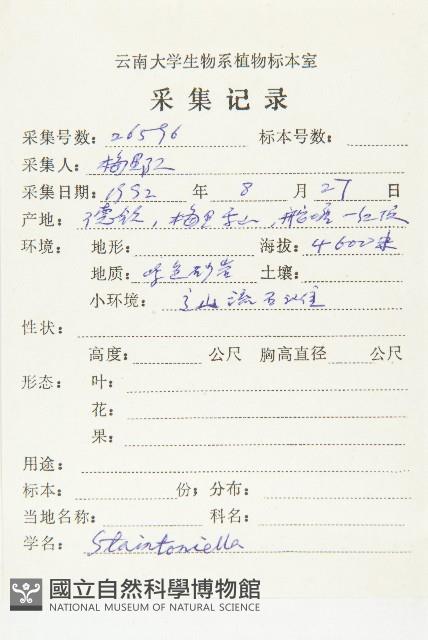 云南大学生物系植物标本室
采集记录
采集号数：26596 标本号数：
采集人：梅里
采集日期：1992 年 8 月 27 日
产地：德钦，梅里雪山，
环境：地形： 海拔：4600米
地质：色砂岩 土壤：
小环境：山流石
性状：
高度： 公尺 胸高直径 公尺
形态：叶：
花：
果：
用途：
标本： 份；分布：
当地名称： 科名：
学名：Staintoniella
國立自然科學博物館
NATIONAL MUSEUM OF NATURAL SCIENCE